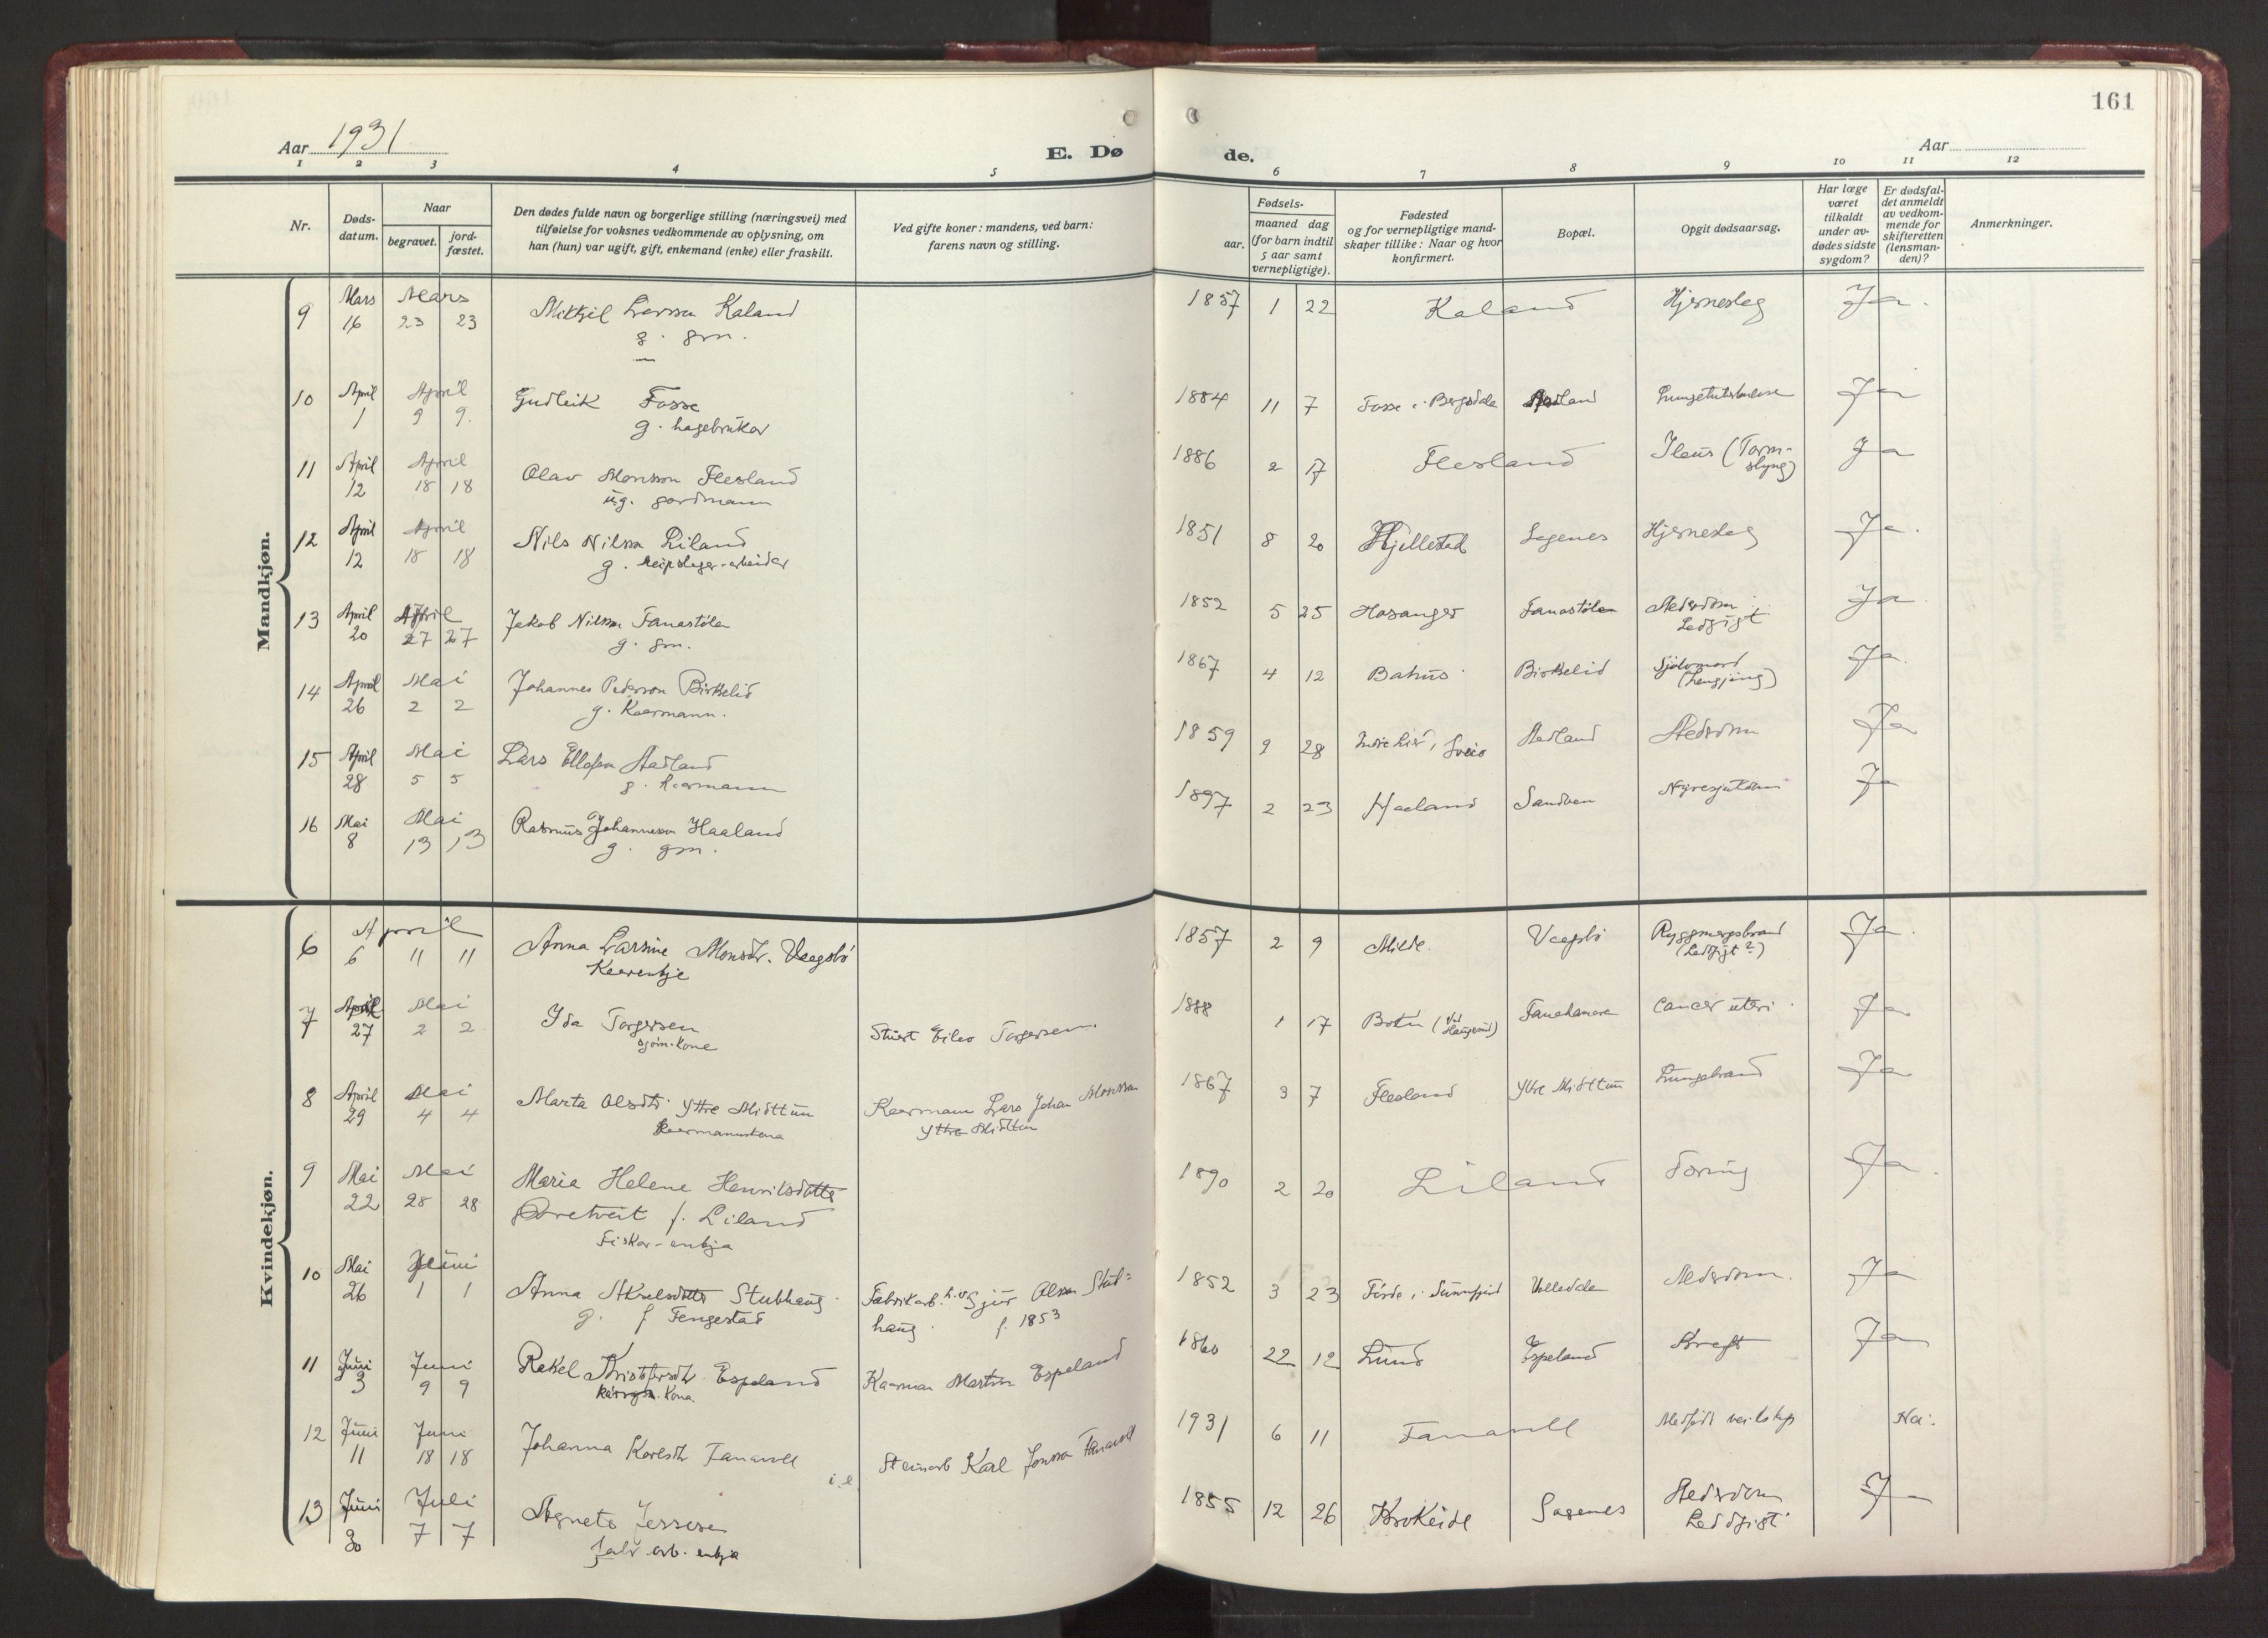 161
Aar 1931
E. Dø
de.
Aar
1 2 3 4 5 6 7 8 9 10 11 12
Nr.
Døds-
datum.
Naar
begravet.
jord-
fæstet.
Den dødes fulde navn og borgerlige stilling (næringsvei) med
tilføielse for voksnes vedkommende av oplysning, om
han (hun) var ugift, gift, enkemand (enke) eller fraskilt.
Ved gifte koner: mandens, ved barn:
farens navn og stilling.
Fødsels-
aar.
maaned dag
(for barn indtil
5 aar samt
vernepligtige).
Fødested
og for vernepligtige mand-
skaper tillike: Naar og hvor
konfirmert.
Bopæl.
Opgit dødsaarsag.
Har læge
været
tilkaldt
under av-
dødes sidste
sygdom?
Er dødsfal-
det anmeldt
av vedkom-
mende for
skifteretten
(lensman-
den)?
Anmerkninger.
Mandkjøn.
9 Mars Mars Mikkjel Larsson Kaland 1857 1 22 Kaland Hjerneslag Ja.
16 23 23 g. grm.
10 April April Gudleik Fosse 1884 11 7 Fosse i Bergsdalen Aadland Lungetuberkulose Ja
1 9 9. g. hagebrukar
11 April April Olav Monsson Flesland 1886 2 17 Flesland Ileus (Tarm-
slyng) Ja
12 18 18 ug. gardmann
12 April April Nils Nilsson Liland 1851 8 20 Hjellestad Sagenes Hjerneslag Ja.
12 18 18 g. reipslagar-arbeidar
13 April April Jakob Nilsson Fanastølen 1852 5 25 Hosanger Fanastølen Alderdom
Ledgigt Ja
20 27 27 g. grm.
14 April Mai Johannes Pederson Birkelid 1867 4 12 Bahus Birkelid Sjølvmord
(hengjing) Ja.
26 2 2 g. Kaarmann.
15 April Mai Lars Ellefson Aadland 1859 9 28 Indre Lier, Sveio Aadland Alderdom Ja
28 5 5 g. kaarmann
16 Mai Mai Rasmus Johanneson Haaland 1897 2 23 Haaland Sandven Nyresjukdom Ja
8 13 13 g. grm.
Kvindekjøn.
6 April Anna Larsine Monsdtr. Vaagsbø 1857 2 9 Milde. Vaagsbø Ryggmergsbrand
(Ledgigt?) Ja.
6 11 11 Kaarenkje
7 April Mai Yda Torgersen Stuert Eilev Torgersen. 1888 1 17 Botn (ved
Haugesund) Fanahamaren Cancer uteri. Ja
27 2 2 sjøm. kone
8 April Mai Marta Olsdtr. Ytre Midttun Kaarmann Lars Johan Monsson 1867 3 7 Flesland Ytre Midttun Lungebrand Ja
29 4 4 Kaarmannskona Ytre Midttun
9 Mai Mai Maria Helene Henriksdotter 1890 2 20 Liland Tæring Ja.
22 28 28 Børetveit f. Liland
Fiskar-enkja
10 Mai Juni Anna Akselsdotter Stubhaug Fabrikarb. Sjur Olsson Stub= 1852 3 23 Førde i Sunnfjord Ulledalen Alderdom. Ja
26 1 1 g. f Fengestad haug. f. 1853
11 Juni Juni Rakel Kristofersdtr. Espeland Kaarman Martin Espeland 1860 22 12 Lund Espeland Kreft Ja
3 9 9 kona.
12 Juni Juni Johanna Karlsdtr Fanavoll Steinarb Karl Jonsson Fanavoll 1931 6 11 Fanavoll Medfødt veikskap Nei.
11 18 18 i. e
13 Juni Juli Agneta Jenssen 1855 12 26 Krokeide Sagenes Alderdom
Leddgigt Ja
30 7 7 fabr. arb. enkja